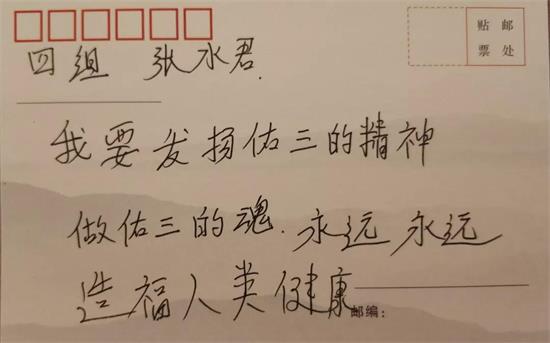 贴 邮
票 处
四组 张水君.
我要发扬佑三的精神
做佑三的魂.永远永远
造福人类健康
邮编: